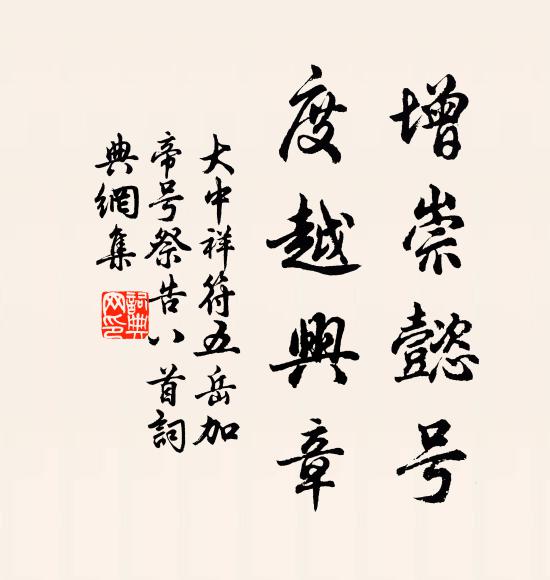 增崇懿号
度越興章
大中祥符五岳加
帝号祭告八首詞
典網集
詞典网印